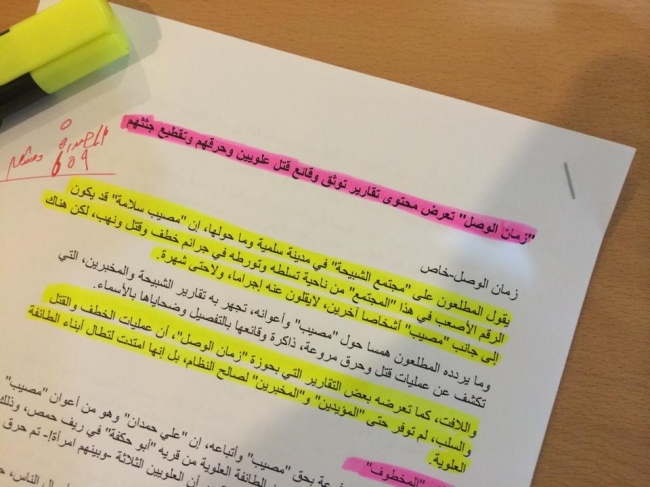 "زمان الوصل" تعرض محتوى تقارير توثق وقائع قتل علويين وحرقهم وتقطيع جثثهم
زمان الوصل-خاص
يقول المطلعون على "مجتمع الشبيحة" في مدينة سلمية وما حولها، إن "مصيب سلامة" قد يكون
الرقم الأصعب في هذا "المجتمع" من ناحية تسلطه وتورطه في جرائم خطف وقتل ونهب، لكن هناك
إلى جانب "مصيب" أشخاصا آخرين، لايقلون عنه إجراما، ولاحتى شهرة.
وما يردده المطلعون همسا حول "مصيب" وأعوانه، تجهر به تقارير الشبيحة والمخبرين، التي
تكشف عن عمليات قتل وحرق مروعة، ذاكرة وقائعها بالتفصيل وضحاياها بالأسماء.
واللافت، كما تعرضه بعض التقارير التي بحوزة "زمان الوصل"، أن عمليات الخطف والقتل
والسلب، لم توفر حتى "المؤيدين" و"المخبرين" لصالح النظام، بل إنها امتدت لتطال أبناء الطائفة
العلوية.
بحق "مصيب" وأتباعه، إن "علي حمدان" وهو من أعوان "مصيب"
الطائفة العلوية من قرية "أبو حكفة" في ريف حمص، وذلك
"المخطوف"
أن العلويين الثلاثة -وبينهم امرأة!- تم حرق
الناس،